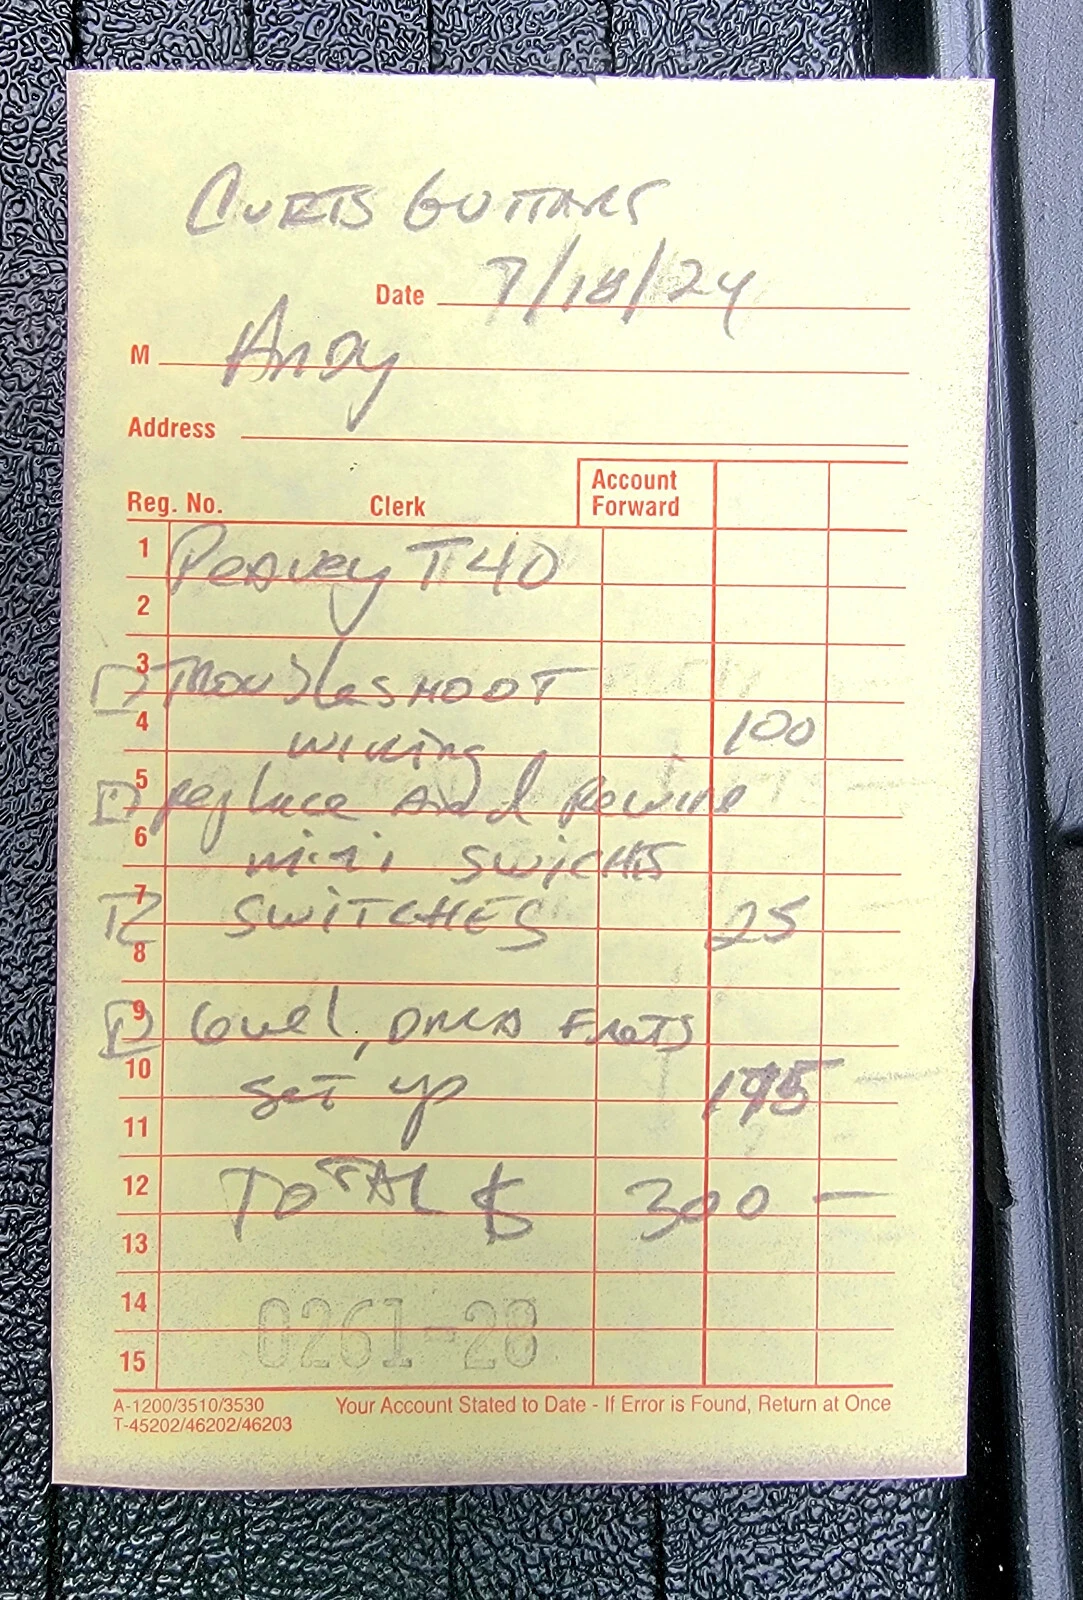 CURTS GUITARS
Date 7/18/24
M Andy
Address
Account
Forward
Reg. No. Clerk
1 Peavey T40
2
3 TROUbleSHOOT
4 wiring 100
5 replace and Rewire
6 mini SWICHTS
7 2 SWITCHES 25
8
9 level, DRESS FRETS
10 set up 175
11
12 TOTAL $ 300 —
13
14 0261-28
15
A-1200/3510/3530 Your Account Stated to Date - If Error is Found, Return at Once
T-45202/46202/46203